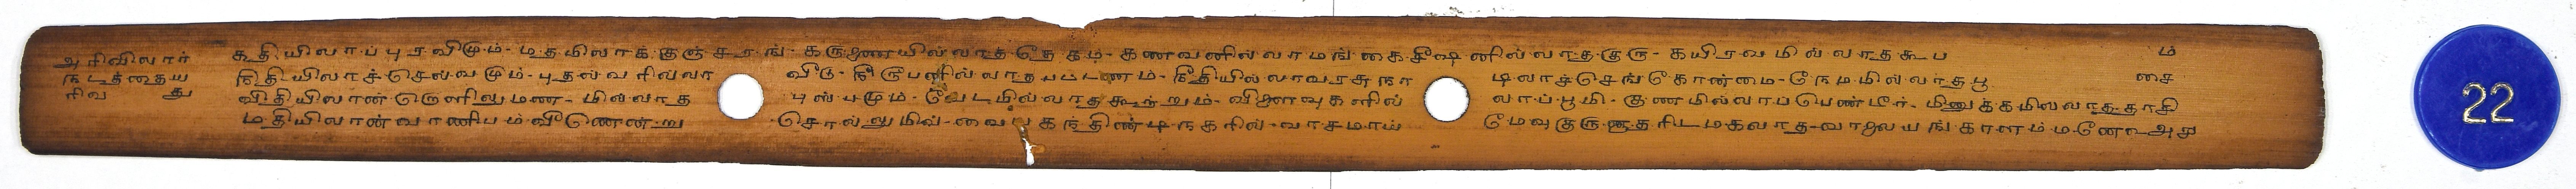 அரிவிலார் சுதியிலாப்புரவிமும்- மதமிலாக்குஞ்சரங் கருணையில்லாத தேகம்- கணவனில்லாமங்கை சீஷனில்லாத குரு- கயிரவமில்லாத கூப ம்
நடத்தைய நிதியிலாச்செல்வமும்- புதல்வரில்லா வீடு- நீரூபனில்லாத பட்டணம்- நீதியில்லாவரசுநா டிலாச்செங்கோண்மை- நேமமில்லாத பூ சை
ரிவ து விதியிலான் ளெனிலுமண- மில்லாத புஸ்பமும்- வேடமில்லாத கூற்றும்- விணாவுகளில் லாப்பூமி- குணமில்லாப்பெண்டீர்- மினுக்கமிலலாத தாசி
மதியிலான் வாணிபம் வீணென்று சொல்லுமிவ்- வை கந்திண்டிநகரில்- வாசமாய் மேவு குருசூதரிட மகலாத- வாலையங்காளம்மணே உஅசு
22